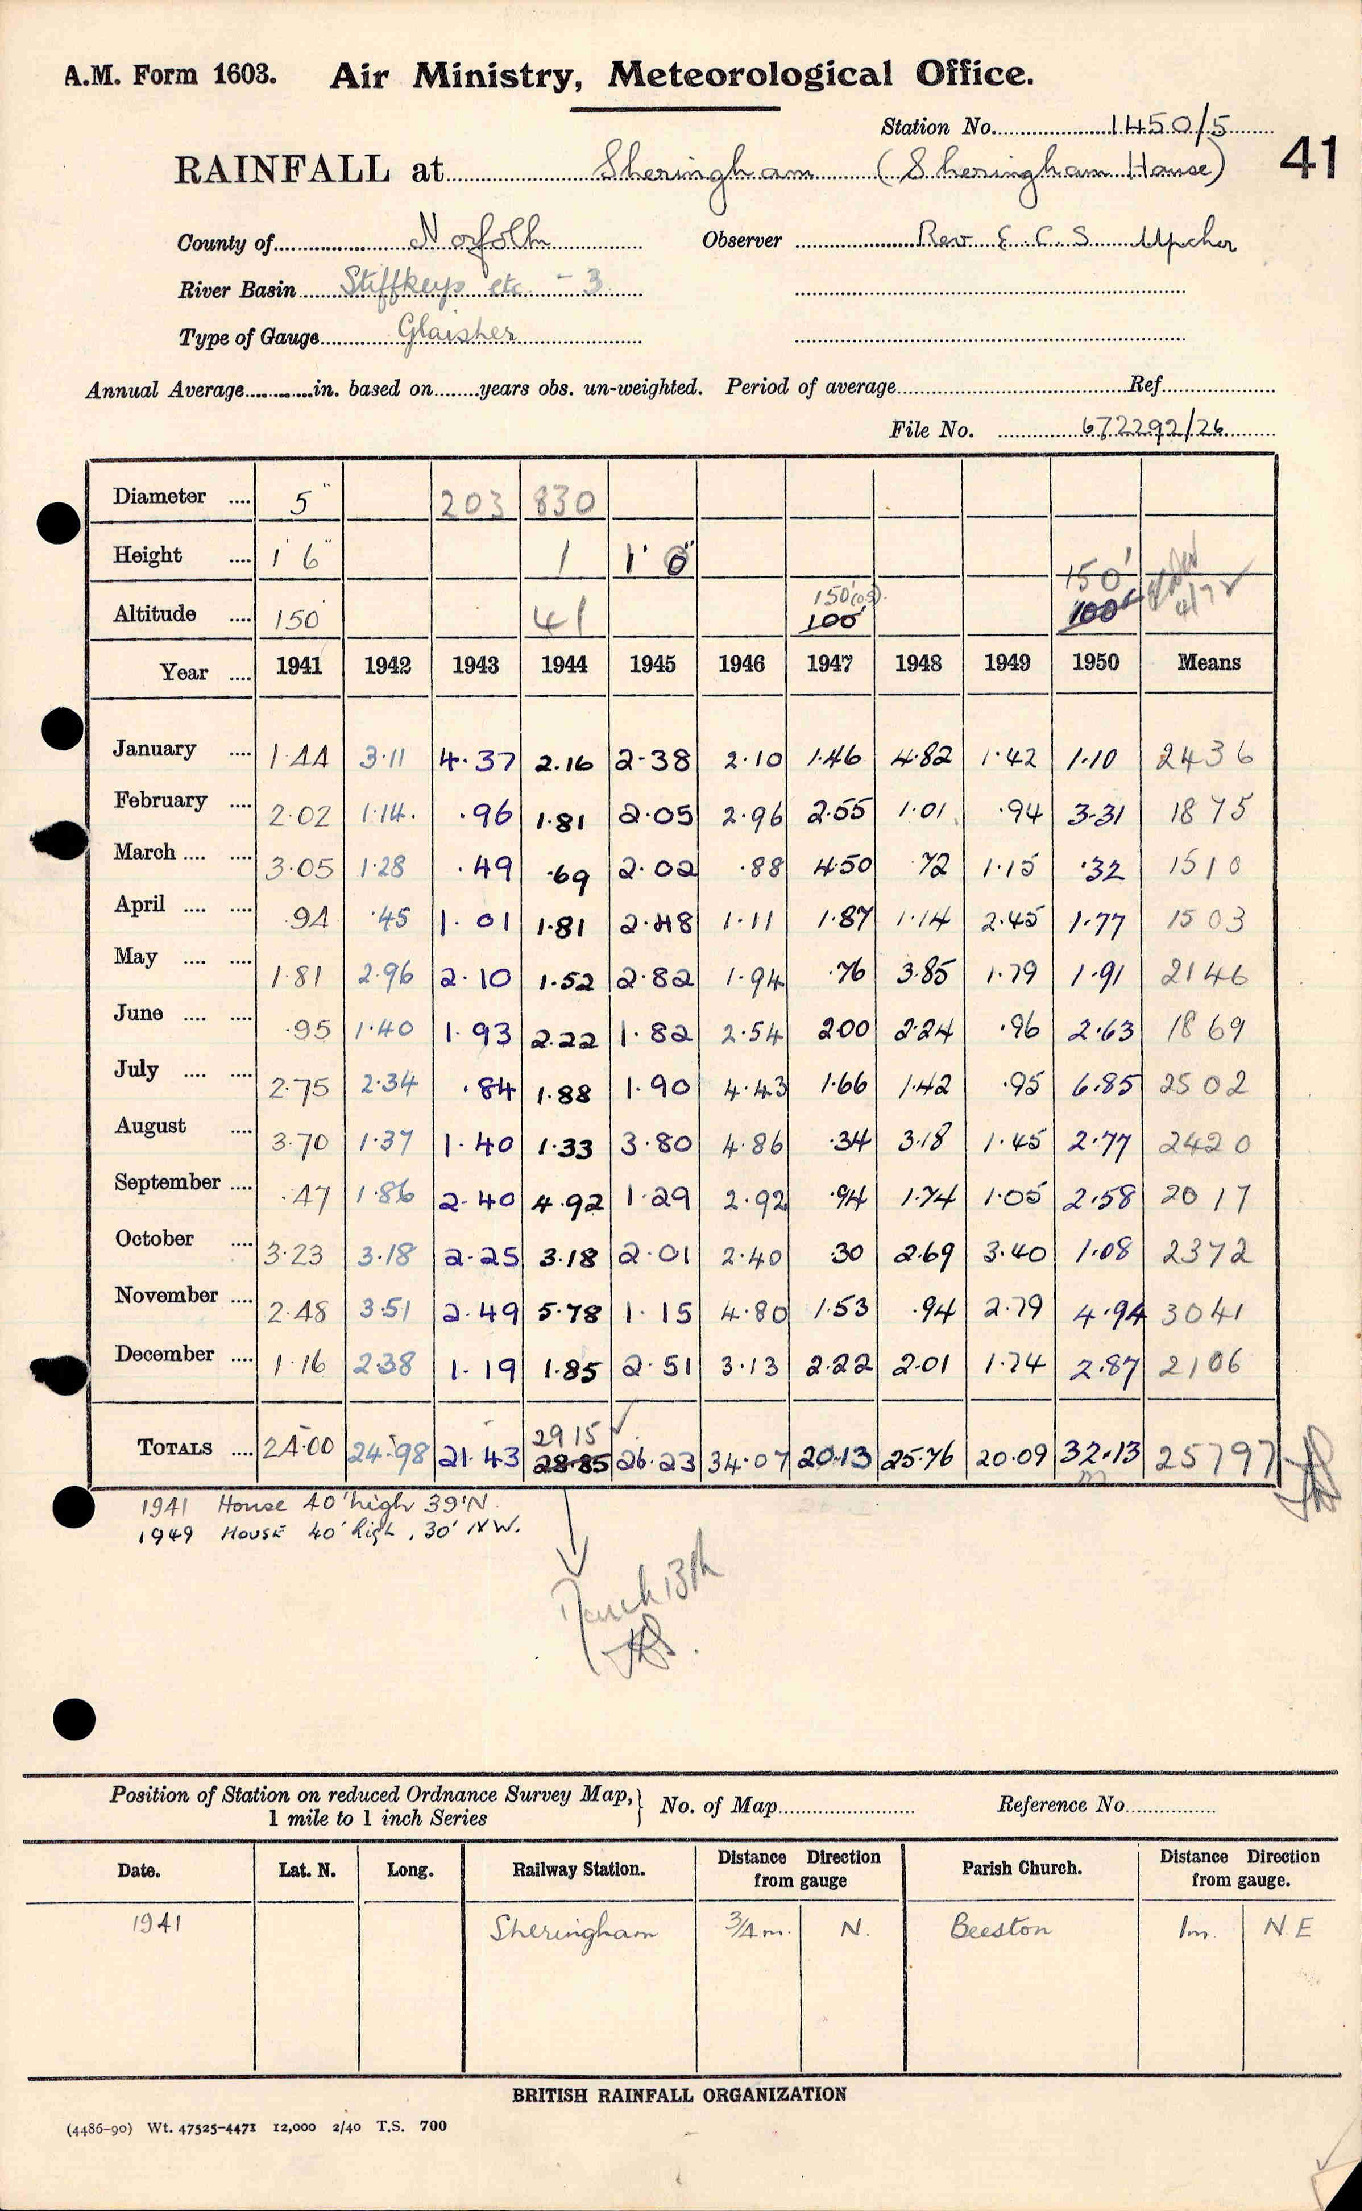 A.M. Form 1603. Air Ministry, Meteorological Office.
Station No. 1450/5
41
RAINFALL at Sheringham (Sheringham House)
County of Norfolk Observer Rev E. C. S. Upcher
River Basin Stiffkeys etc - 3
Type of Gauge Glaisher
Annual Average in. based on years obs. un-weighted. Period of average Ref
File No. 672292/26
Diameter .... 5" 203 830
Height .... 1' 6" 1 1' 0" 150'
Altitude .... 150 41 150' 100' 100'
Year .... 1941 1942 1943 1944 1945 1946 1947 1948 1949 1950 Means
January .... 1.44 3.11 4.37 2.16 2.38 2.10 1.46 4.82 1.42 1.10 2436
February .... 2.02 1.14 .96 1.81 2.05 2.96 2.55 1.01 .94 3.31 1875
March .... .... 3.05 1.28 .49 .69 2.02 .88 4.50 .72 1.15 .32 1510
April .... .... .94 .45 1.01 1.81 2.48 1.11 1.87 1.14 2.45 1.77 1503
May .... .... 1.81 2.96 2.10 1.52 2.82 1.94 .76 3.85 1.79 1.91 2146
June .... .... .95 1.40 1.93 2.22 1.82 2.54 2.00 2.24 .96 2.63 1869
July .... .... 2.75 2.34 .84 1.88 1.90 4.43 1.66 1.42 .95 6.85 2502
August .... 3.70 1.37 1.40 1.33 3.80 4.86 .34 3.18 1.45 2.77 2420
September .... .47 1.86 2.40 4.92 1.29 2.92 .94 1.74 1.05 2.58 2017
October .... 3.23 3.18 2.25 3.18 2.01 2.40 .30 2.69 3.40 1.08 2372
November .... 2.48 3.51 2.49 5.78 1.15 4.80 1.53 .94 2.79 4.94 3041
December .... 1.16 2.38 1.19 1.85 2.51 3.13 2.22 2.01 1.74 2.87 2106
29 15
TOTALS .... 24.00 24.98 21.43 28.85 26.23 34.07 20.13 25.76 20.09 32.13 25797
1941 House 40' high 39'N.
1949 HOUSE 40' high, 30' NW.
March 13th
Position of Station on reduced Ordnance Survey Map, 1 mile to 1 inch Series } No. of Map Reference No.
Date. Lat. N. Long. Railway Station. Distance Direction from gauge Parish Church. Distance Direction from gauge.
1941 Sheringham 3/4 m. N. Beeston 1m. N.E
BRITISH RAINFALL ORGANIZATION
(4486-90) Wt. 47525-4471 12,000 2/40 T.S. 700